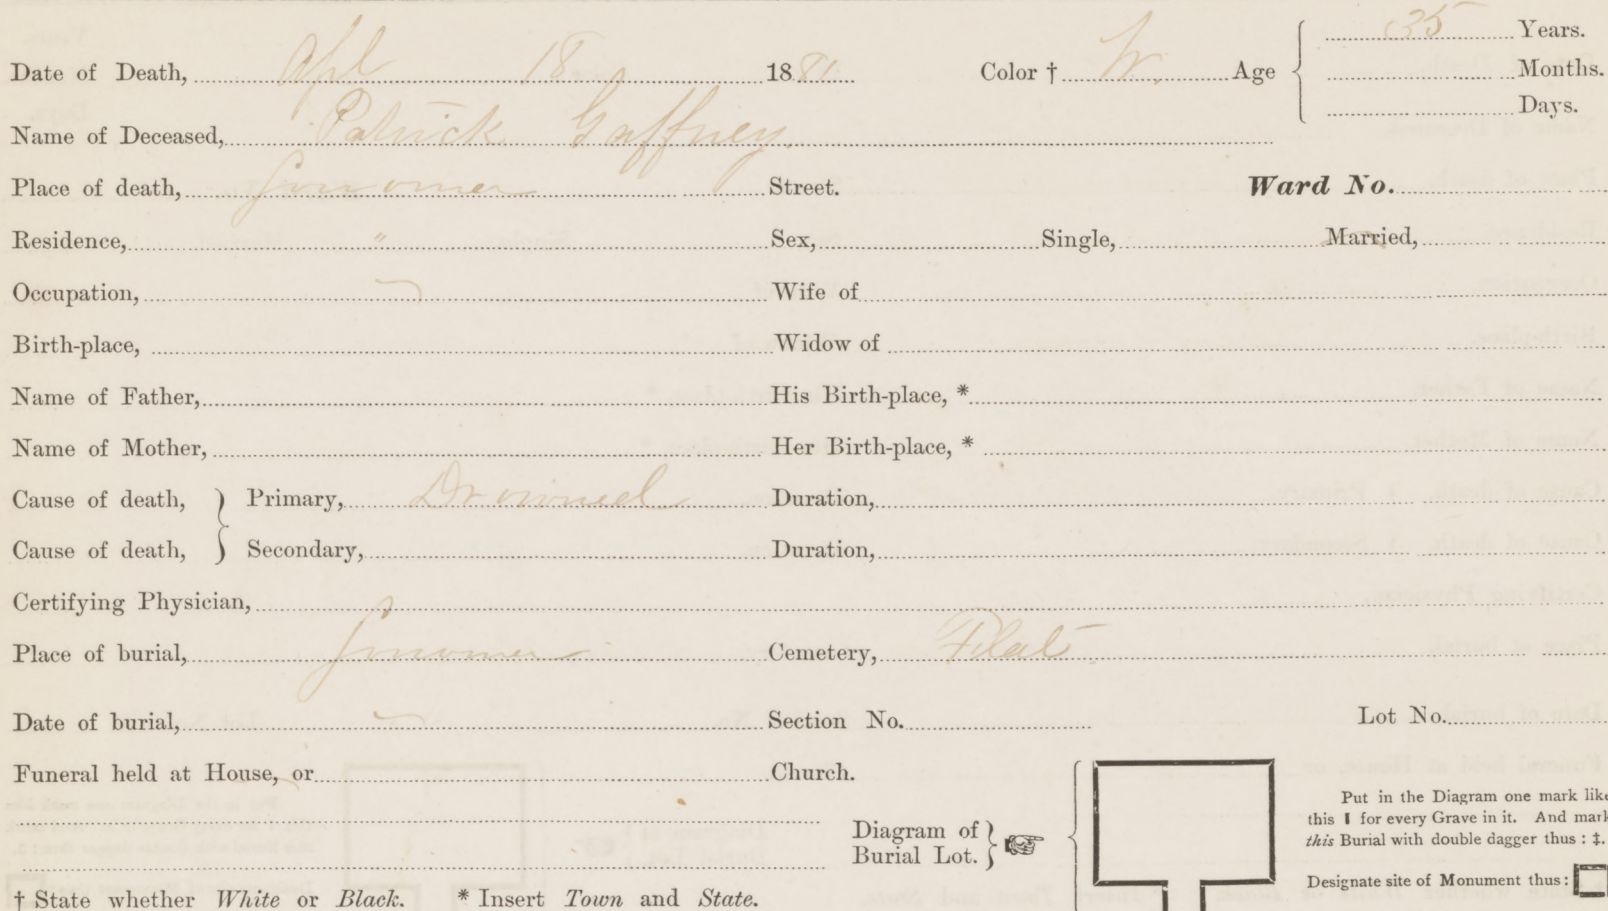 Date of Death, Apl 18 1881 Color † W. Age 35 Years.
Months.
Days.
Name of Deceased, Patrick Gaffney.
Place of death, Street. Ward No.
Residence, " Sex, Single, Married,
Occupation, Wife of
Birth-place, Widow of
Name of Father, His Birth-place, *
Name of Mother, Her Birth-place, *
Cause of death, } Primary, Drowned Duration,
Cause of death, } Secondary, Duration,
Certifying Physician,
Place of burial, Cemetery,
Date of burial, Section No. Lot No.
Funeral held at House, or Church.
Diagram of Burial Lot.
Put in the Diagram one mark like
this ▮ for every Grave in it. And mark
this Burial with double dagger thus : ‡.
Designate site of Monument thus :
† State whether White or Black. * Insert Town and State.